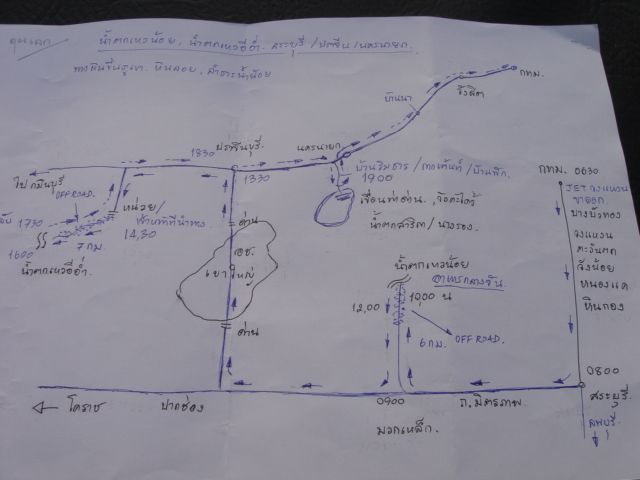 น้ำตกเหวน้อย, น้ำตกเหวอีอ่ำ. สระบุรี / ปราจีน / นครนายก
ทางเดินขึ้นภูเขา. หินลอย, ลำธารน้ำน้อย
กทม.
รังสิต
บ้านนา
นครนายก
ปราจีนบุรี
1830
1330
ไปกบินบุรี
OFF ROAD.
1730
1600
7 กม.
น้ำตกเหวอีอ่ำ
หน่วย/
เจ้าหน้าที่นำทาง
14,30
บ้านริมธาร / กางเต้นท์ / บ้านพัก.
1900
เขื่อนท่าด่าน,
น้ำตกสาริกา / นางรอง.
กทม. 0630
บางบัวทอง
วังน้อย
หนองแค
หินกอง
ด่าน
อช.
เขาใหญ่
ด่าน
น้ำตกเหวน้อย
อาหารกลางวัน
12,00
1000 น
6 กม.
OFF ROAD.
0800
สระบุรี
ลพบุรี
โคราช
ปากช่อง
0900
ถ.มิตรภาพ
มวกเหล็ก.